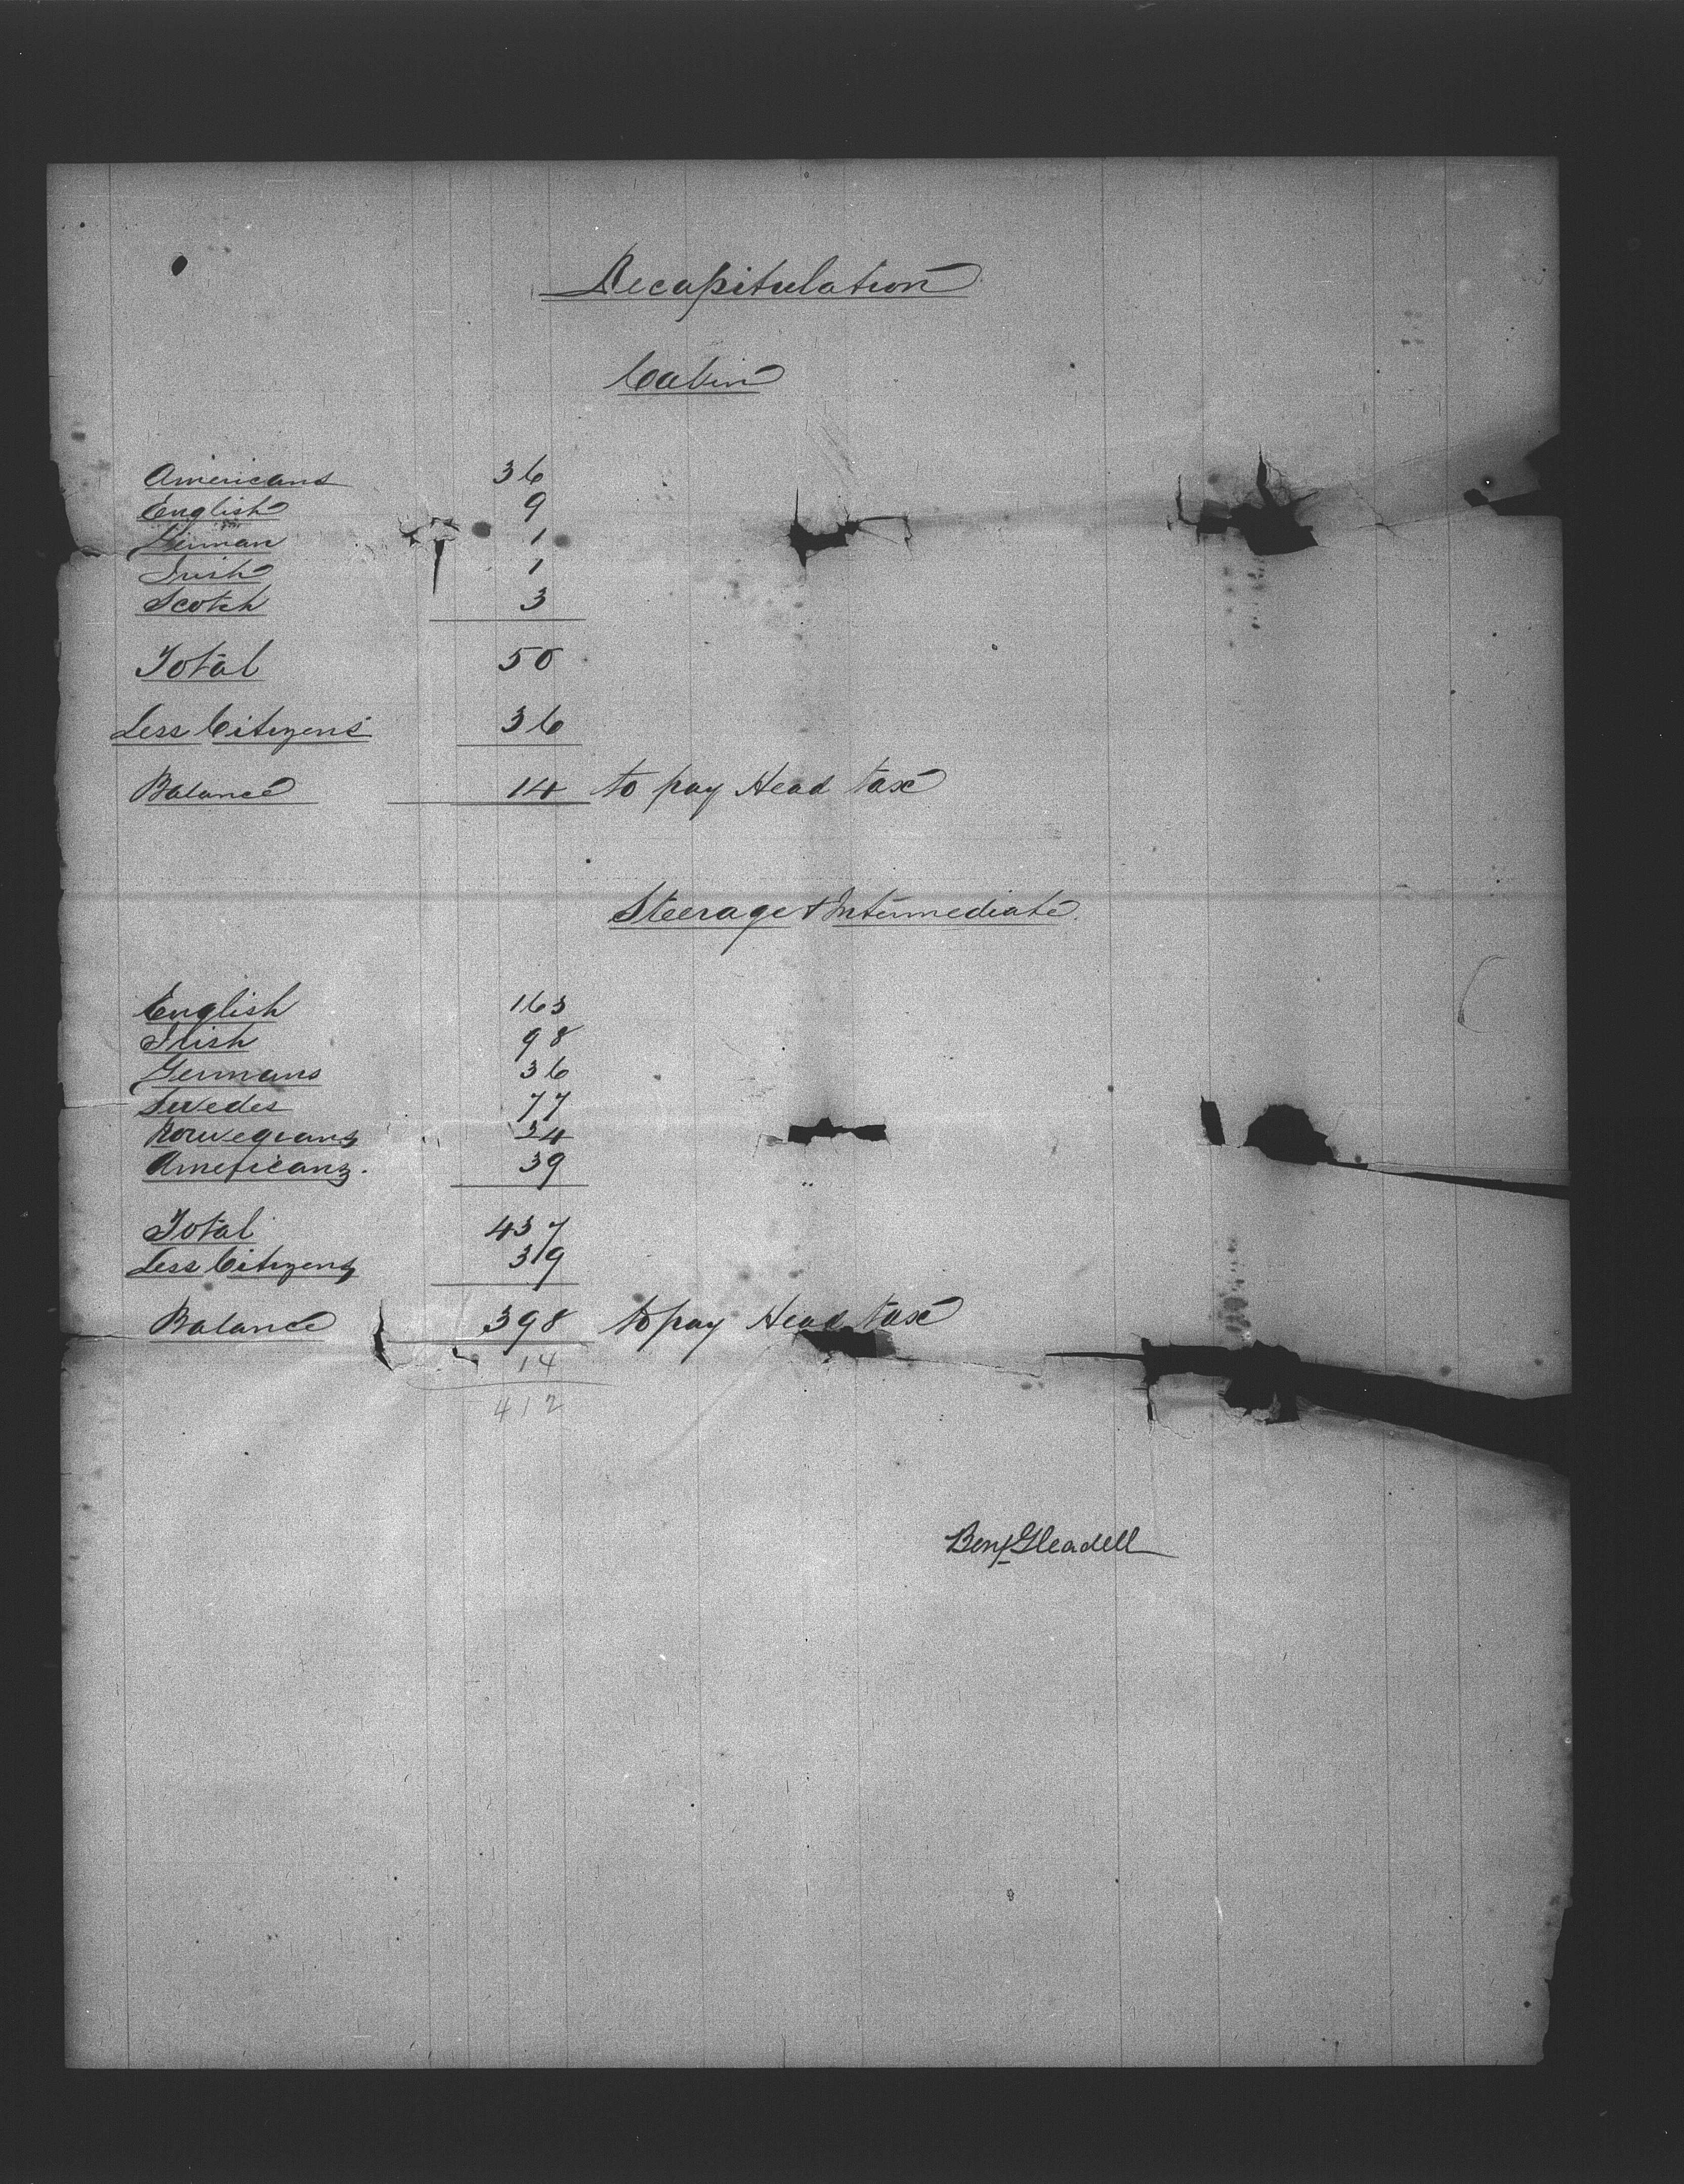 Recapitulation
Cabin
Americans 36
English 9
German 1
Irish 1
Scotch 3
Total 50
Less Citizens 36
Balance 14 to pay Head tax
Steerage & Intermediate
English 163
Irish 98
Germans 36
Swedes 77
Norwegians 24
Americans. 39
Total 437
Less Citizens 39
Balance 398 to pay Head tax
14
412
Benj Gleadell